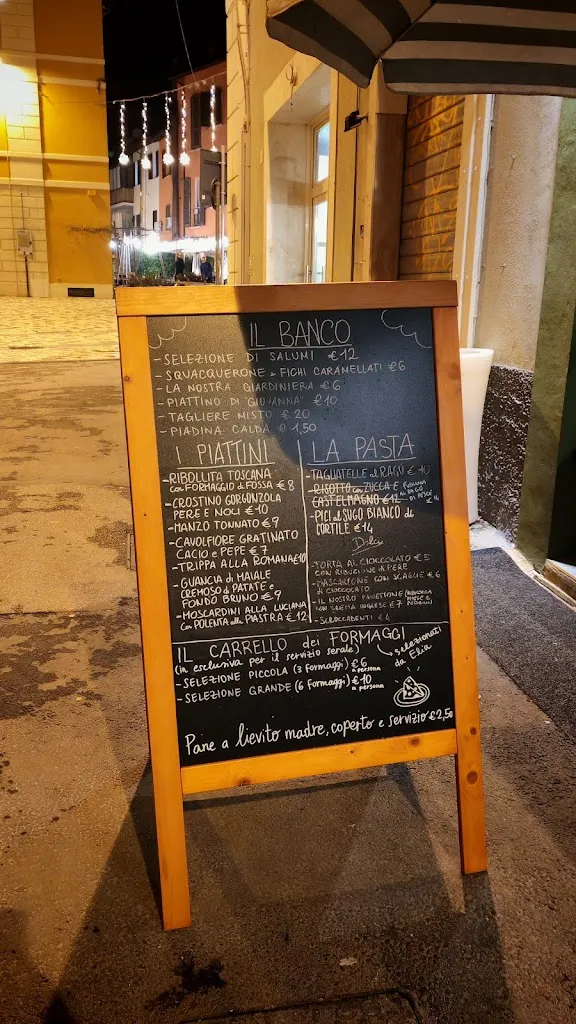 IL BANCO
- SELEZIONE DI SALUMI €12
- SQUACQUERONE e FICHI CARAMELLATI €6
- LA NOSTRA GIARDINIERA €6
- PIATTINO DI "GIOVANNA" €10
- TAGLIERE MISTO €20
- PIADINA CALDA € 1,50
I PIATTINI
- RIBOLLITA TOSCANA
con FORMAGGIO di FOSSA €8
- CROSTINO GORGONZOLA
PERE E NOCI €10
- MANZO TONNATO €9
- CAVOLFIORE GRATINATO
CACIO e PEPE €7
- TRIPPA ALLA ROMANA €10
- GUANCIA di MAIALE
CREMOSO di PATATE e
FONDO BRUNO €9
- MOSCARDINI ALLA LUCIANA
con POLENTA alla PIASTRA €12
LA PASTA
- TAGLIATELLE al RAGÙ €10
- RISOTTO con ZUCCA E
CASTELMAGNO €12
AL SUGO
DI PESCE
€14
- PICI al SUGO BIANCO di
CORTILE €14
Dolci
- TORTA AL CIOCCOLATO €5
CON RIDUZIONE di PERE
- MASCARPONE CON SCAGLIE €6
di CIOCCOLATO
- IL NOSTRO PANETTONE
con CREMA INGLESE €7
- SCROCCADENTI €4
IL CARRELLO dei FORMAGGI
(in esclusiva per il servizio serale)
selezionati
da Elia
- SELEZIONE PICCOLA (3 formaggi) €6
a persona
- SELEZIONE GRANDE (6 formaggi) €10
a persona
Pane a lievito madre, coperto e servizio €2,50